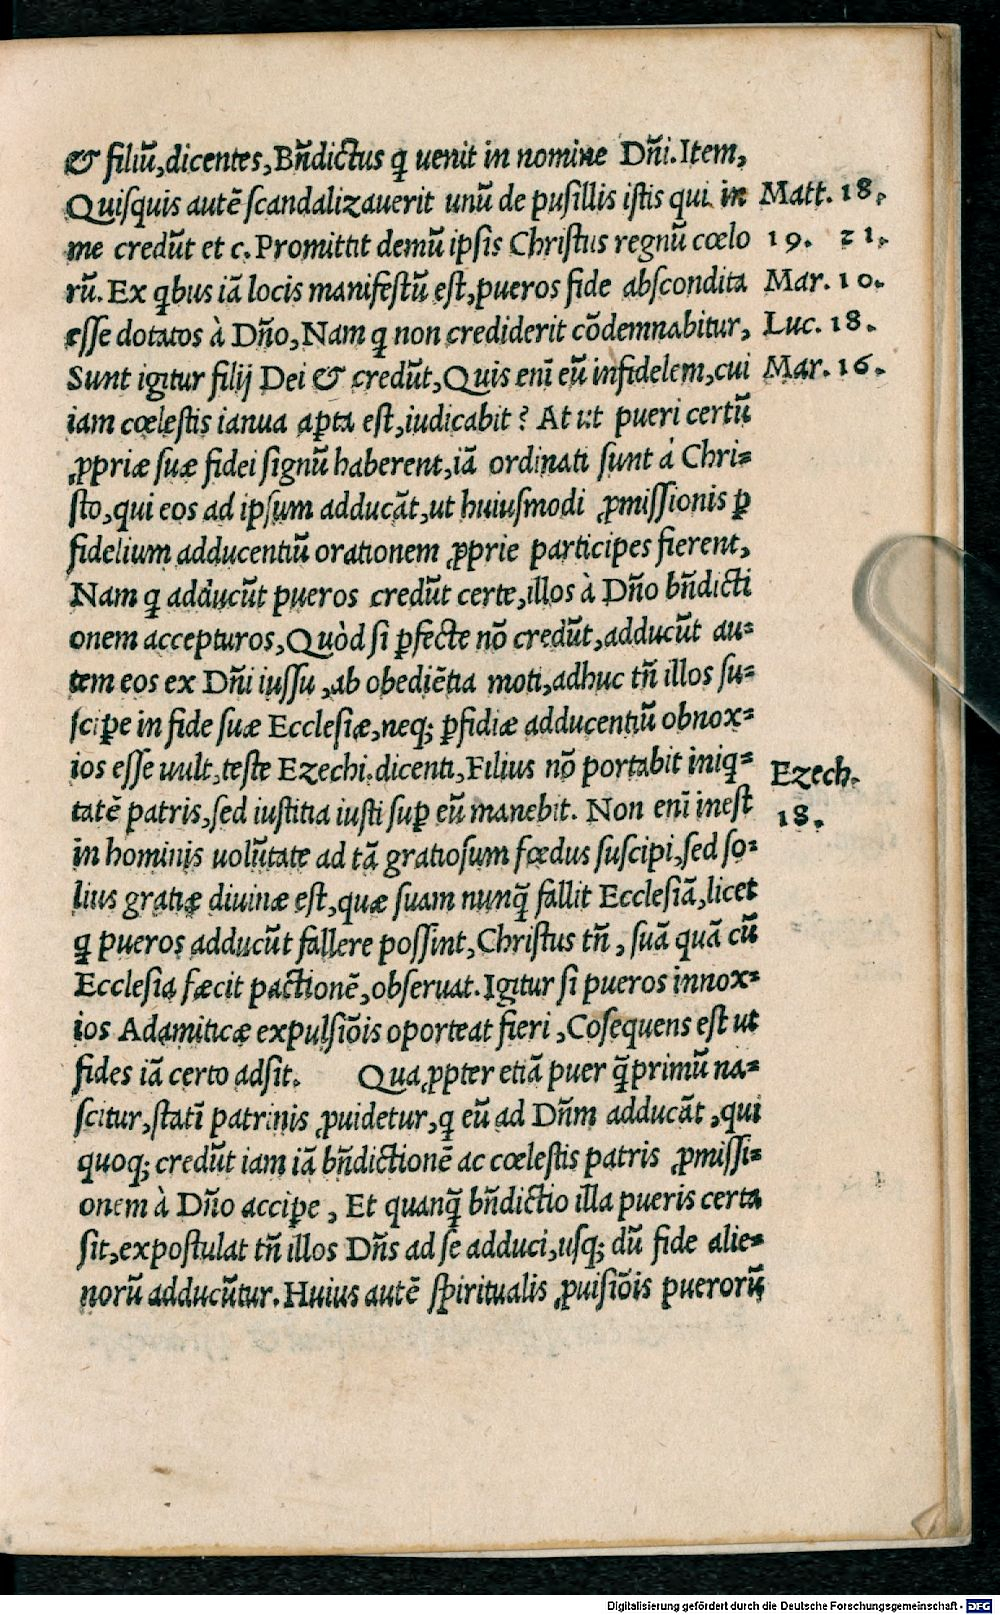 & filiũ, dicentes, Bñdictus ꝗ uenit in nomine Dñi. Item,
Quisquis autẽ scandalizauerit unũ de pusillis istis qui in Matt. 18.
me credũt et c. Promittit demũ ipsis Christus regnũ cœlo 19. 21.
rũ. Ex ꝗbus iã locis manifestũ est, pueros fide abscondita Mar. 10.
esse dotatos à Dño, Nam ꝗ non crediderit cõdemnabitur, Luc. 18.
Sunt igitur filij Dei & credũt, Quis enĩ eũ infidelem, cui Mar. 16.
iam cœlestis ianua aꝑta est, iudicabit? At ut pueri certũ
ꝓpriæ suæ fidei signũ haberent, iã ordinati sunt á Chri=
sto, qui eos ad ipsum adducãt, ut huiusmodi ꝓmissionis ꝑ
fidelium adducentiũ orationem ꝓprie participes fierent,
Nam ꝗ adducũt pueros credũt certe, illos à Dño bñdicti
onem accepturos, Quòd si ꝑfecte nõ credũt, adducũt au=
tem eos ex Dñi iussu, ab obediẽtia moti, adhuc tñ illos su=
sciꝑe in fide suæ Ecclesiæ, neq; ꝑfidiæ adducentiũ obnox=
ios esse uult, teste Ezechi. dicenti, Filius nõ portabit iniꝗ= Ezech.
tatẽ patris, sed iustitia iusti suꝑ eũ manebit. Non enĩ inest 18.
in hominis uolũtate ad tã gratiosum fœdus suscipi, sed so=
lius gratiæ diuinæ est, quæ suam nunq̃ fallit Ecclesiã, licet
ꝗ pueros adducũt fallere possint, Christus tñ, suã quã cũ
Ecclesia fæcit pactionẽ, obseruat. Igitur si pueros innox=
ios Adamiticæ expulsiõis oporteat fieri, Cõsequens est ut
fides iã certo adsit. Qua ꝓpter etiã puer q̃primũ na=
scitur, statĩ patrinis ꝓuidetur, ꝗ eũ ad Dñm adducãt, qui
quoq; credũt iam iã bñdictionẽ ac cœlestis patris ꝓmissi=
onem à Dño acciꝑe, Et quanq̃ bñdictio illa pueris certa
sit, expostulat tñ illos Dñs ad se adduci, usq; dũ fide alie=
norũ adducũtur. Huius autẽ spiritualis ꝓuisiõis puerorũ
Digitalisierung gefördert durch die Deutsche Forschungsgemeinschaft - DFG